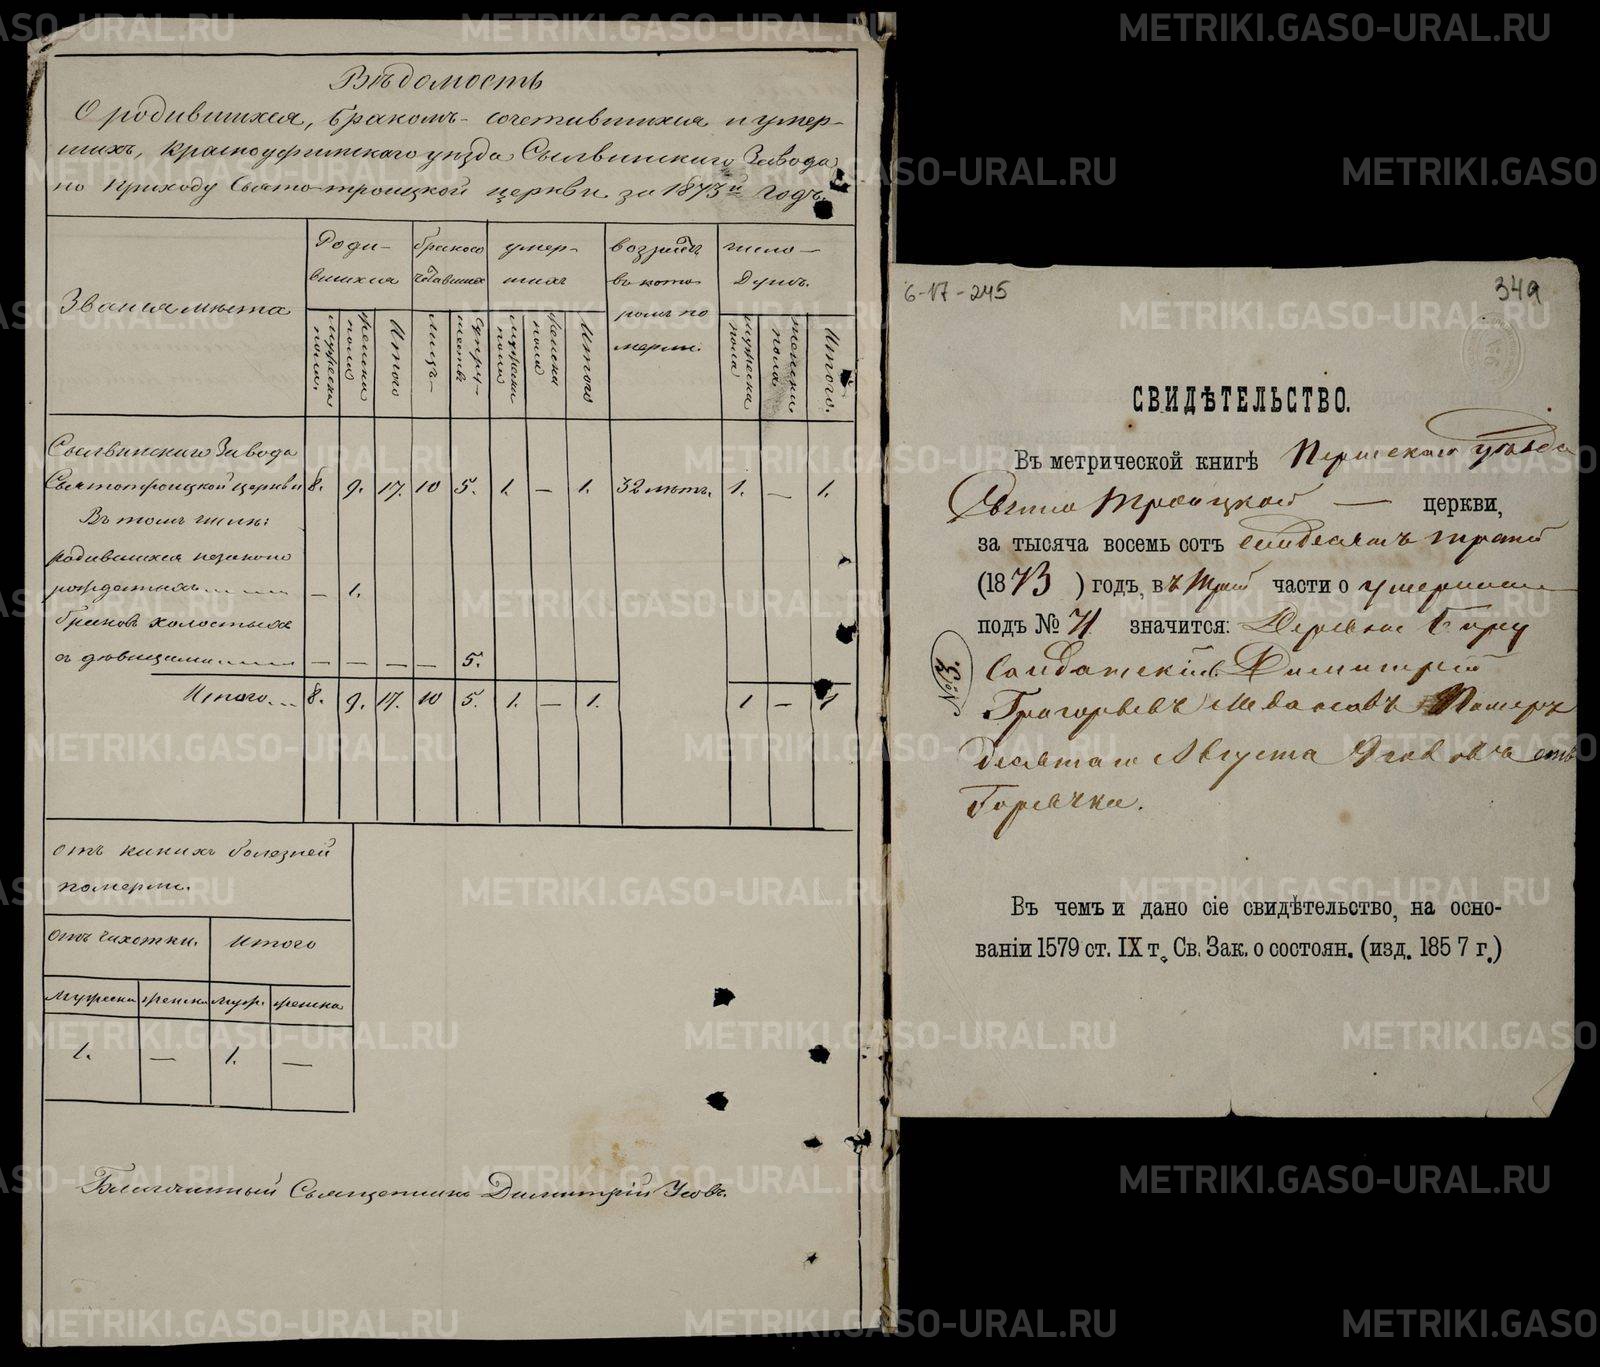 Вѣдомость
О родившихся, бракомъ сочетавшихся и умер-
шихъ, Красноуфимскаго уѣзда Сылвинскаго Завода
по приходу Свято-троицкой церкви за 1873й годъ.
Званія мѣста
Роди-
вшихся
мужеска пола.
женска пола
Итого
бракосо
четавшихся
лицъ
супру-
жествъ
умер-
шихъ
мужеска пола
женска пола
Итого
возрастъ
въ кото
ромъ по
мерли.
число
Душъ.
мужеска пола
женска пола
Итого.
Сылвинскаго Завода
Святотроицкой церкви 8. 9. 17. 10 5. 1. — 1. 32 лѣтъ. 1. — 1.
Въ томъ числѣ:
родившихся незаконно
рожденныхъ — 1.
браковъ холостыхъ
съ дѣвицами — — — — 5.
Итого 8. 9. 17. 10 5. 1. — 1. 1 — 1
отъ какихъ болезней
померли.
отъ чахотки. Итого
мужеска женска муж. женска
1. — 1. —
Благочинный Священникъ Димитрій Усовъ.
6-17-245
349
СВИДѢТЕЛЬСТВО.
Въ метрической книгѣ Пермскаго уѣзда
Свято Троицкой — церкви,
за тысяча восемь сотъ семдесятъ третій
(1873) годъ, въ трей части о умершихъ
подъ № 71 значится: Деревни
Солдатскій Димитрій
Григорьевъ Померъ
десятаго Августа отъ
Горячки.
№3
Въ чемъ и дано сіе свидѣтельство, на осно-
ваніи 1579 ст. IX т. Св. Зак. о состоян. (изд. 1857 г.)
METRIKI.GASO-URAL.RU